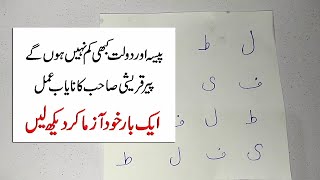 پیسہ اور دولت کبھی کم نہیں ہوں گے
پیر قریشی صاحب کا نایاب عمل
ایک بار خود آزما کر دیکھ لیں
ل ط
ف ی
ط ل ف
ی ف ل ط